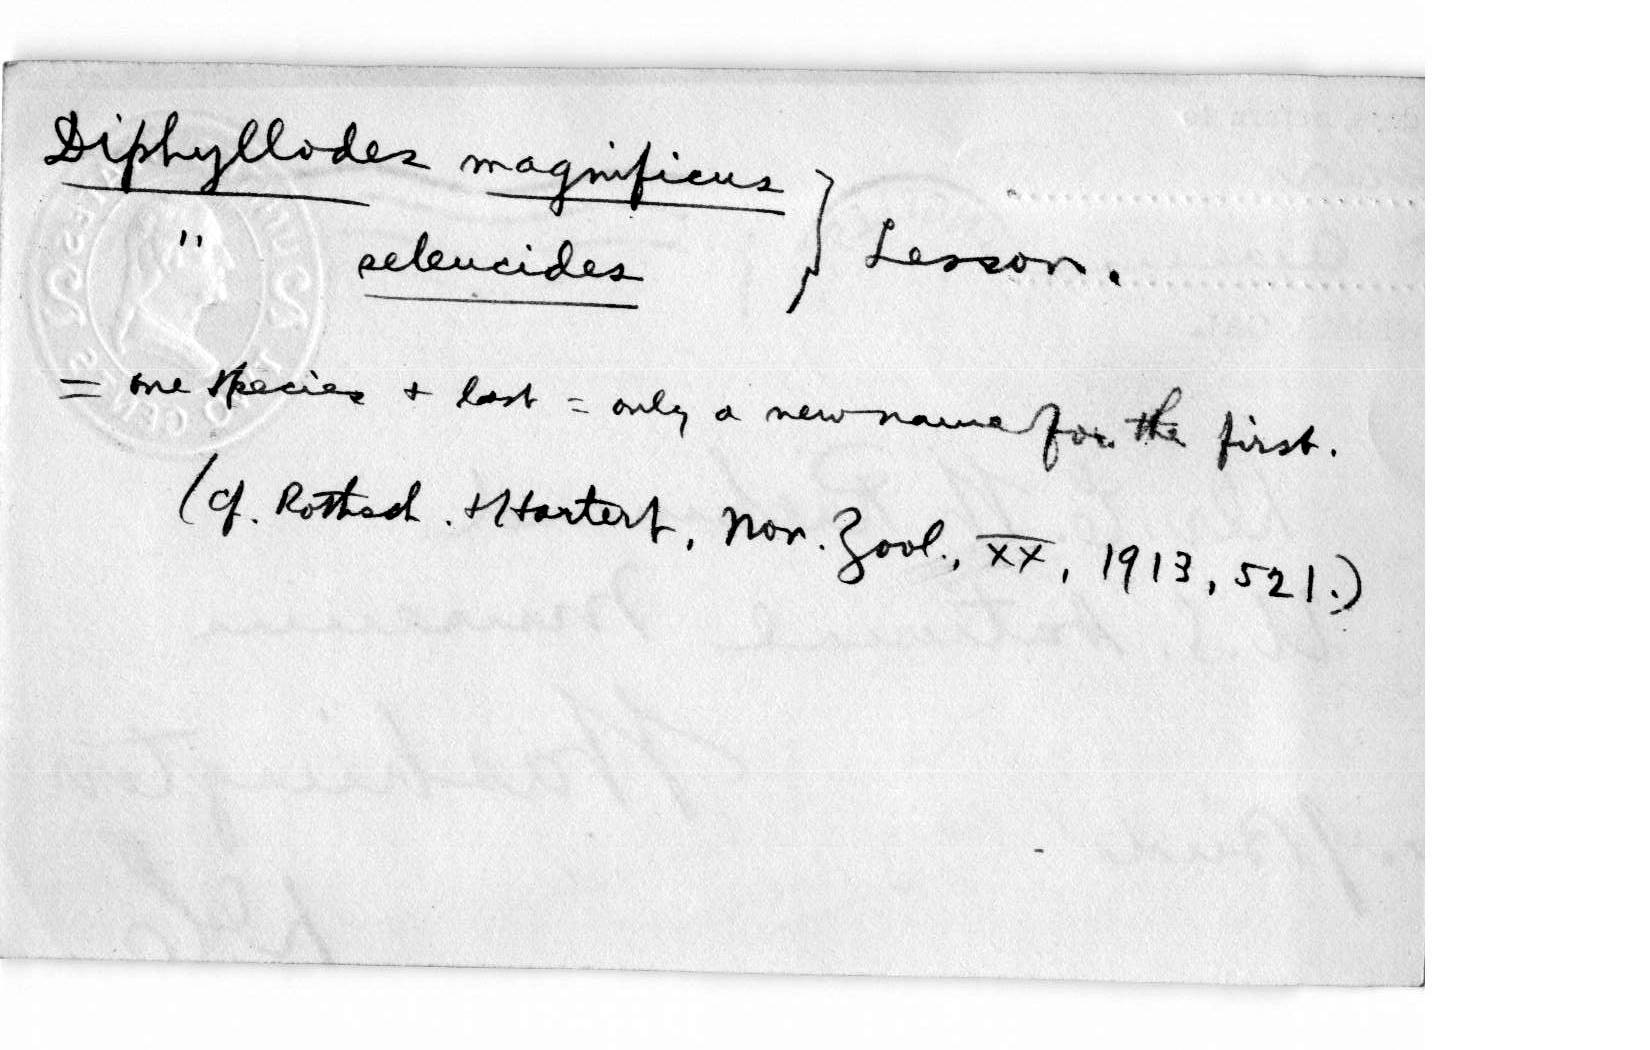 Diphyllodes magnificus } Lesson.
" seleucides
= one species + last = only a new name for the first.
(cf. Rothsch. + Hartert, Nov. Zool., XX, 1913, 521.)